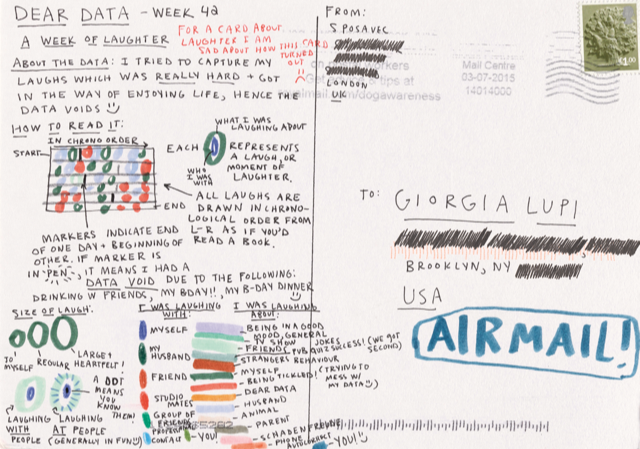 DEAR DATA - WEEK 42
A WEEK OF LAUGHTER
FOR A CARD ABOUT
LAUGHTER I AM
SAD ABOUT HOW THIS CARD
TURNED
OUT
!!
ABOUT THE DATA: I TRIED TO CAPTURE MY
LAUGHS WHICH WAS REALLY HARD + GOT
IN THE WAY OF ENJOYING LIFE, HENCE THE
DATA VOIDS
HOW TO READ IT:
IN CHRONO ORDER
START
END
EACH
WHAT I WAS
LAUGHING ABOUT
WHO
I WAS
WITH
REPRESENTS
A LAUGH, OR
MOMENT OF
LAUGHTER.
ALL LAUGHS ARE
DRAWN IN CHRONO-
LOGICAL ORDER FROM
L-R AS IF YOU'D
READ A BOOK.
MARKERS INDICATE END
OF ONE DAY + BEGINNING OF
OTHER. IF MARKER IS
IN "PEN", IT MEANS I HAD A
DATA VOID DUE TO THE FOLLOWING:
DRINKING W FRIENDS, MY BDAY!!, MY B-DAY DINNER
SIZE OF LAUGH:
TO MYSELF
REGULAR
LARGE + HEARTFELT!
A DOT
MEANS
YOU
KNOW
THEM!
LAUGHING
WITH
PEOPLE
LAUGHING
AT PEOPLE
(GENERALLY IN FUN)
I WAS LAUGHING
WITH:
MYSELF
MY
HUSBAND
FRIEND
STUDIO
MATES
GROUP OF
FRIENDS
PROFESSIONAL
CONTACT
-YOU!
I WAS LAUGHING
ABOUT:
BEING IN A GOOD
MOOD, GENERAL
TV SHOW JOKES
FRIENDS PUB QUIZ SUCCESS! (WE GOT
SECOND)
STRANGERS BEHAVIOUR
MYSELF
BEING TICKLED! (TRYING TO
MESS W
MY DATA)
DEAR DATA
HUSBAND
ANIMAL
PARENT
SCHADENFREUDE
PHONE
AUTOCORRECT
-YOU!
FROM:
S POSAVEC
LONDON
UK
Mail Centre
03-07-2015
14014000
dogawareness
£1.00
TO:
GIORGIA LUPI
BROOKLYN, NY
USA
AIRMAIL!